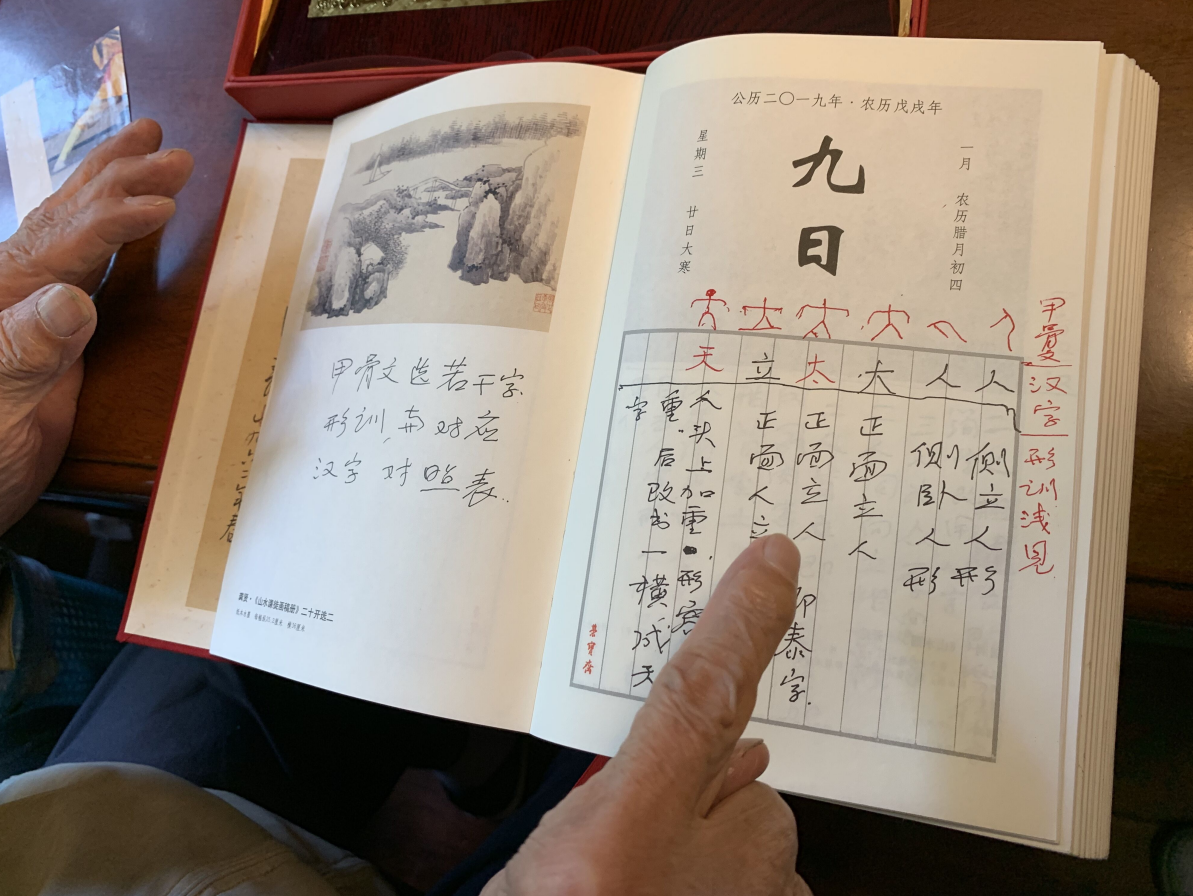 甲骨文选若干字
形训,与对应
汉字对照表..
黄景·《山水课徒画稿册》二十开选二
公历二〇一九年·农历戊戌年
一月 农历腊月初四
九日
星期三 廿日大寒
汉字形训浅见
人 侧立人形
人 侧卧人形
大 正面立人
太 正面立人 即泰字.
立 正面人立
天 大头上加重●,形容
重.后改书一横成天
字
荣宝斋